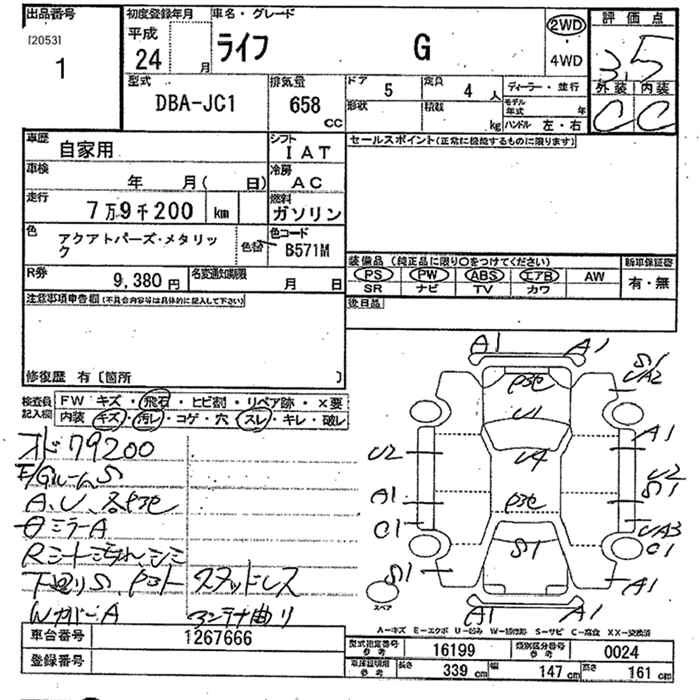 出品番号
[2053]
1
初度登録年月
平成
24 月
車名・グレード
ライフ G
2WD
4WD
評価点
3.5
外装 内装
C C
型式
DBA-JC1
排気量
658 cc
ドア 5
定員 4 人
形状 積載 kg
ディーラー・並行
モデル年式 年
ハンドル 左・右
車歴 自家用
シフト IAT
セールスポイント(正常に機能するものに限ります)
車検 年 月( 日)
冷房 AC
走行 7万9千200 km
燃料 ガソリン
色 アクアトパーズ・メタリック
色替
色コード B571M
装備品 (純正品に限り○をつけてください)
新車保証書
PS PW ABS エアB AW
SR ナビ TV カワ
有・無
R券 9,380 円
名変通知期限 月 日
後日品
注意事項申告欄(不具合内容等は具体的に記入して下さい)
修復歴 有〔箇所 〕
検査員記入欄
FW キズ・飛石・ヒビ割・リペア跡・×要
内装 キズ・汚レ・コゲ・穴・スレ・キレ・破レ
オド 79200
E/GルームS
A、U、各ヤケ
ミラーA
下廻りS、
スタッドレス
アンテナ曲り
A1 A1
S1
UA2
U1
A1
U2
U4
U2
S1
A1
C1
UA3
C1
S1
S1
A1
A1 A1
スペア
A-キズ E-エクボ U-凹み W-補修跡 S-サビ C-腐食 XX-交換済
車台番号 1267666
登録番号
型式指定番号 参考 16199
類別区分番号 参考 0024
車庫証明用 参考
長さ 339 cm 幅 147 cm 高さ 161 cm